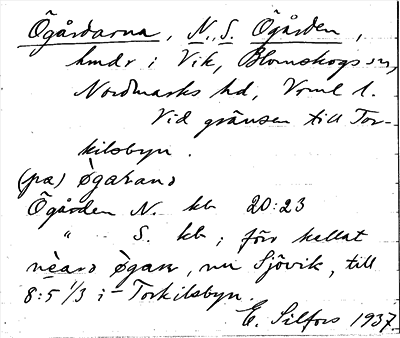 Ögårdarna, N., S. Ögården,
hmdr i Vik, Blomskogs sn,
Nordmarks hd, Vrml l.
Vid gränsen till Tor-
kilsbyn.
(pa) ògaŗana
Ögården N. kb 20:23
" S. kb; förr kallat
ògaņ, nu Sjövik, till
8:5 1/3 i Torkilsbyn.
E. Silfors 1937.